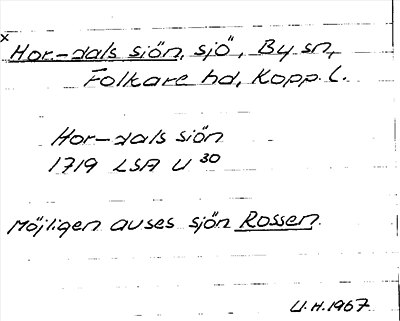 x
Hor-dals siön, sjö, By sn,
Folkare hd, Kopp. l.
Hor-dals siön
1719 LSA U 30
Möjligen avses sjön Rossen.
U.H. 1967